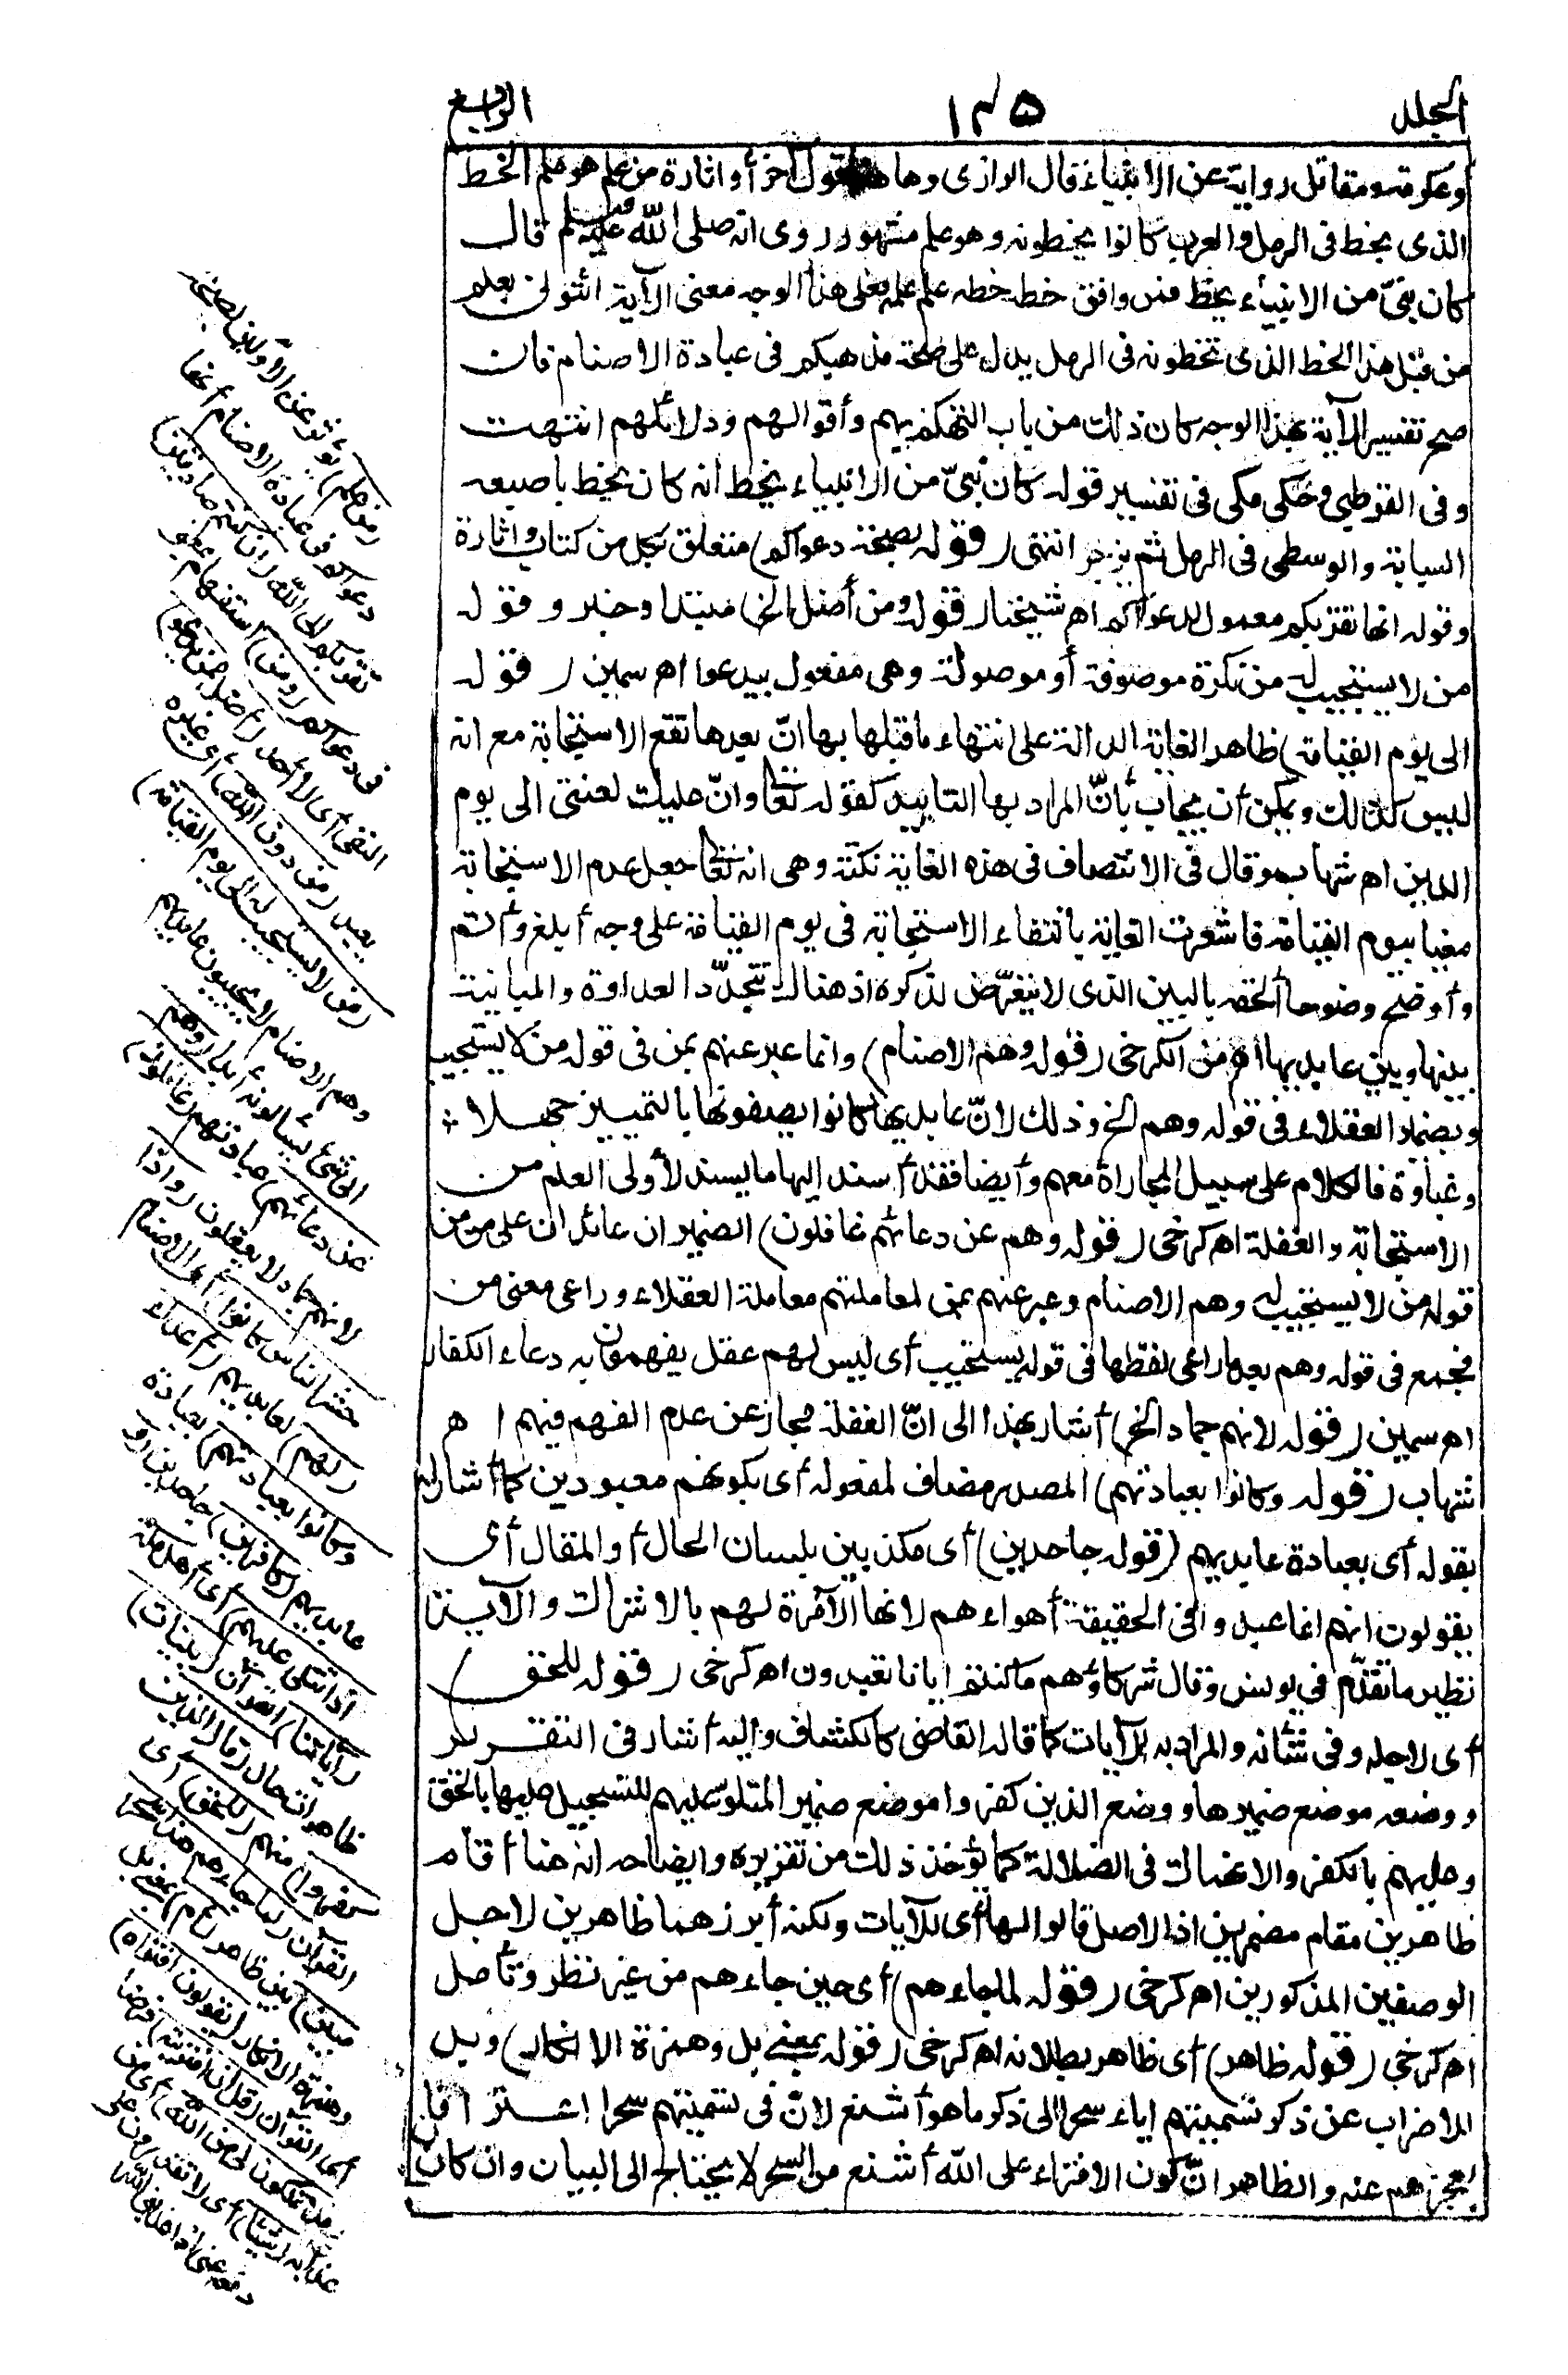 الجلد ١٣٥ الرابع
وعكرمة ومقاتل رواية عن الانبياء قال الرازى وها هنا قول آخر أو اثارة من علم هو علم الخط
الذى يخط فى الرمل والعرب كانوا يخطونه وهو علم مشهور روى انه صلى الله عليه وسلم قال
كان نبىّ من الانبياء يخط فمن وافق خط خطه علم علمه فعلى هذا الوجه معنى الآية ائتونى بعلم
من قبل هذا الخط الذى تخطونه فى الرمل يدل على صحة مذهبكم فى عبادة الاصنام فان
صح تفسير الآية بهذا الوجه كان ذلك من باب التهكم بهم وأقوالهم ودلائلهم انتهت
وفى القرطبى وحكى مكى فى تفسير قوله كان نبىّ من الانبياء يخط انه كان يخط باصبعه
السبابة والوسطى فى الرمل ثم يزجر انتهى (قوله بصحة دعواكم) متعلق بكل من كتاب واثارة
وقوله انها تقربكم معمول لدعواكم اه شيخنا (قوله ومن أضل الخ) مبتدا وخبر وقوله
من لا يستجيب له من نكرة موصوفة أو موصولة وهى مفعول بيدعوا اه سمين (قوله
الى يوم القيامة) ظاهر الغاية الدالة على انتهاء ماقبلها بها انّ بعدها تقع الاستجابة مع انه
ليس كذلك ويمكن أن يجاب بأنّ المراد بها التابيد كقوله تعالى وانّ عليك لعنتى الى يوم
الدين اه شهاب وقال فى الانتصاف فى هذه الغاية نكتة وهى انه تعالى جعل عدم الاستجابة
مغيا بيوم القيامة فاشعرت الغاية بانتفاء الاستجابة فى يوم القيامة على وجه أبلغ وأتم
وأوضح وضوحا ألحقه بالبين الذى لا يتعرّض لذكره اذ هناك تتجدّد العداوة والمباينة
بينها وبين عابديها اه من الكرخى (قوله وهم الاصنام) وانما عبر عنهم بمن فى قوله من لا يستجيب
وبضمير العقلاء فى قوله وهم الخ وذلك لانّ عابديها كانوا يصفونها بالتمييز جهلا
وغباوة فالكلام على سبيل المجاراة معهم وأيضا فقد أسند إليها ما يسند لأولى العلم من
الاستجابة والغفلة اه كرخى (قوله وهم عن دعائهم غافلون) الضميران عائدان على من من
قوله من لا يستجيب له وهم الاصنام وعبر عنهم بمن لمعاملتهم معاملة العقلاء وراعى معنى من
فجمع فى قوله وهم بعد ما راعى لفظها فى قوله يستجيب أى ليس لهم عقل يفهمون به دعاء الكفار
اه سمين (قوله لانهم جماد الخ) أشار بهذا الى انّ الغفلة مجاز عن عدم الفهم فيهم اه
شهاب (قوله وكانوا بعبادتهم) المصدر مضاف لمفعوله أى بكونهم معبودين كما أشار له
بقوله أى بعبادة عابديهم (قوله جاحدين) أى مكذبين بلسان الحال أو المقال أى
يقولون انهم انما عبدوا فى الحقيقة أهواءهم لانها الآمرة لهم بالاشراك والآية
نظير ما تقدّم فى يونس وقال شركاؤهم ما كنتم ايانا تعبدون اه كرخى (قوله للحق)
أى لاجله وفى شأنه والمراد به الآيات كما قاله القاضى كالكشاف واليه أشار فى التقرير
ووضعه موضع ضميرها ووضع الذين كفروا موضع ضمير المتلو عليهم للتسجيل عليها بالحق
وعليهم بالكفر والانهماك فى الضلالة كما يؤخذ ذلك من تقريره وايضاحه انه هنا أقام
ظاهرين مقام مضمرين اذ الاصل قالوا لها أى للآيات ولكنه أبرزهما ظاهرين لاجل
الوصفين المذكورين اه كرخى (قوله لما جاءهم) أى حين جاءهم من غير نظر وتأمل
اه كرخى (قوله ظاهر) أى ظاهر بطلانه اه كرخى (قوله بمعنى بل وهمزة الانكار) وبل
للاضراب عن ذكر تسميتهم اياه سحرا الى ذكر ما هو أشنع لانّ فى تسميتهم سحرا اعترافا
بعجزهم عنه والظاهر انّ كون الافتراء على الله أشنع من السحر لا يحتاج الى البيان وان كان
(من علم) يؤثر عن الأولين بصحة
دعواكم فى عبادة الاصنام أنها
تقربكم الى الله (ان كنتم صادقين)
فى دعواكم (ومن) استفهام بمعنى
النفى أى لا أحد (أضل ممن يدعو)
يعبد (من دون الله) أى غيره
(من لا يستجيب له الى يوم القيامة)
وهم الاصنام لا يجيبون عابديهم
الى شئ يسألونه أبدا (وهم
عن دعائهم) عبادتهم (غافلون)
لانهم جماد لا يعقلون (واذا
حشر الناس كانوا) أى الاصنام
(لهم) لعابديهم (أعداء
وكانوا بعبادتهم) بعبادة
عابديهم (كافرين) جاحدين (و
اذا تتلى عليهم) أى أهل مكة
(آياتنا) القرآن (بينات)
ظاهرات حال (قال الذين
كفروا) منهم (للحق) أى
القرآن (لما جاءهم هذا سحر
مبين) بين ظاهر (أم) بمعنى بل
وهمزة الانكار (يقولون افتراه)
أى القرآن (قل ان افتريته) فرضا
(فلا تملكون لى من الله) أى من
عذابه (شيئا) أى لا تقدرون على
دفعه عنى اذا عذبنى الله